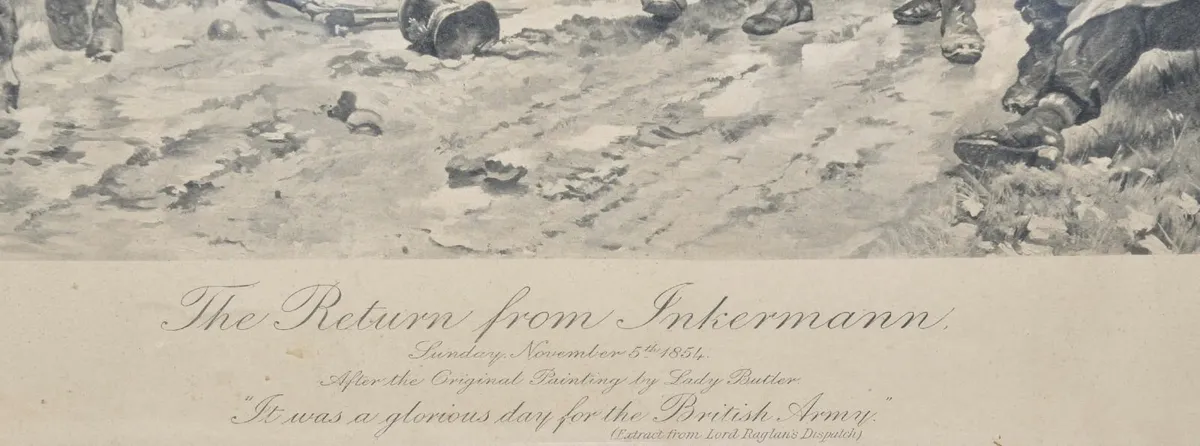 The Return from Inkermann.
Sunday, November 5th 1854.
After the Original Painting by Lady Butler.
"It was a glorious day for the British Army."
(Extract from Lord Raglan's Dispatch)